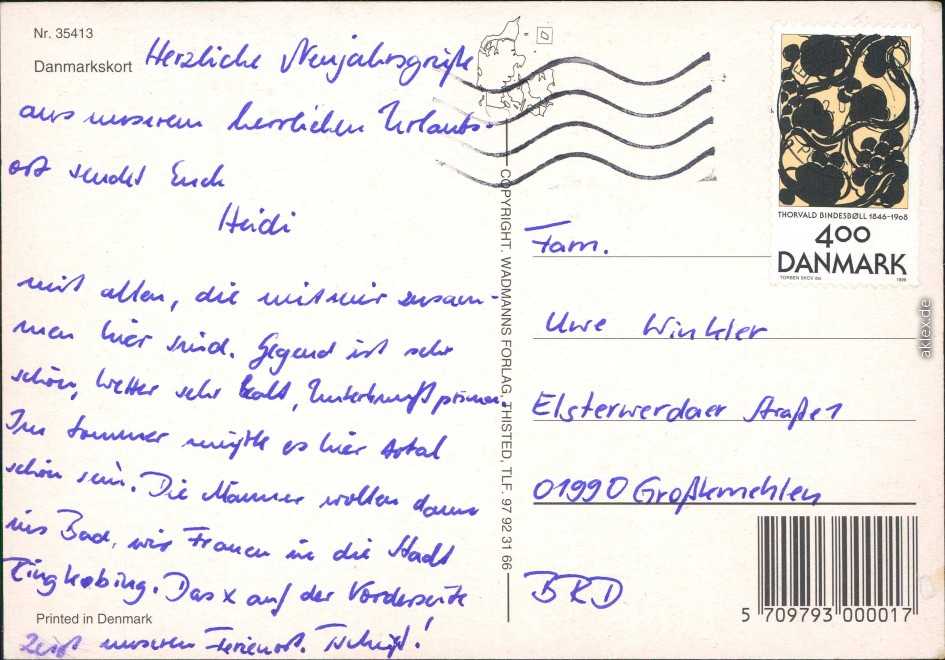 Nr. 35413
Danmarkskort
Herzliche Neujahrsgrüße
aus unserem herrlichen Urlaubs-
ort sendet Euch
Heidi
mit allen, die mit mir zusam-
men hier sind. Gegend ist sehr
schön, Wetter sehr kalt, Unterkunft prima.
Im Sommer müßte es hier total
schön sein. Die Männer wollen dann
ins Bad, wir Frauen in die Stadt
Ringkobing. Das x auf der Vorderseite
zeigt unseren Ferienort. Tschüß!
Printed in Denmark
COPYRIGHT. WADMANNS FORLAG, THISTED, TLF. 97 92 31 66
THORVALD BINDESBØLL 1846-1908
4.00
DANMARK
TORBEN SKOV DK. 1996
Fam.
Uwe Winkler
Elsterwerdaer Straße 1
01990 Großkmehlen
BRD
5 709793 000017
aklex.de